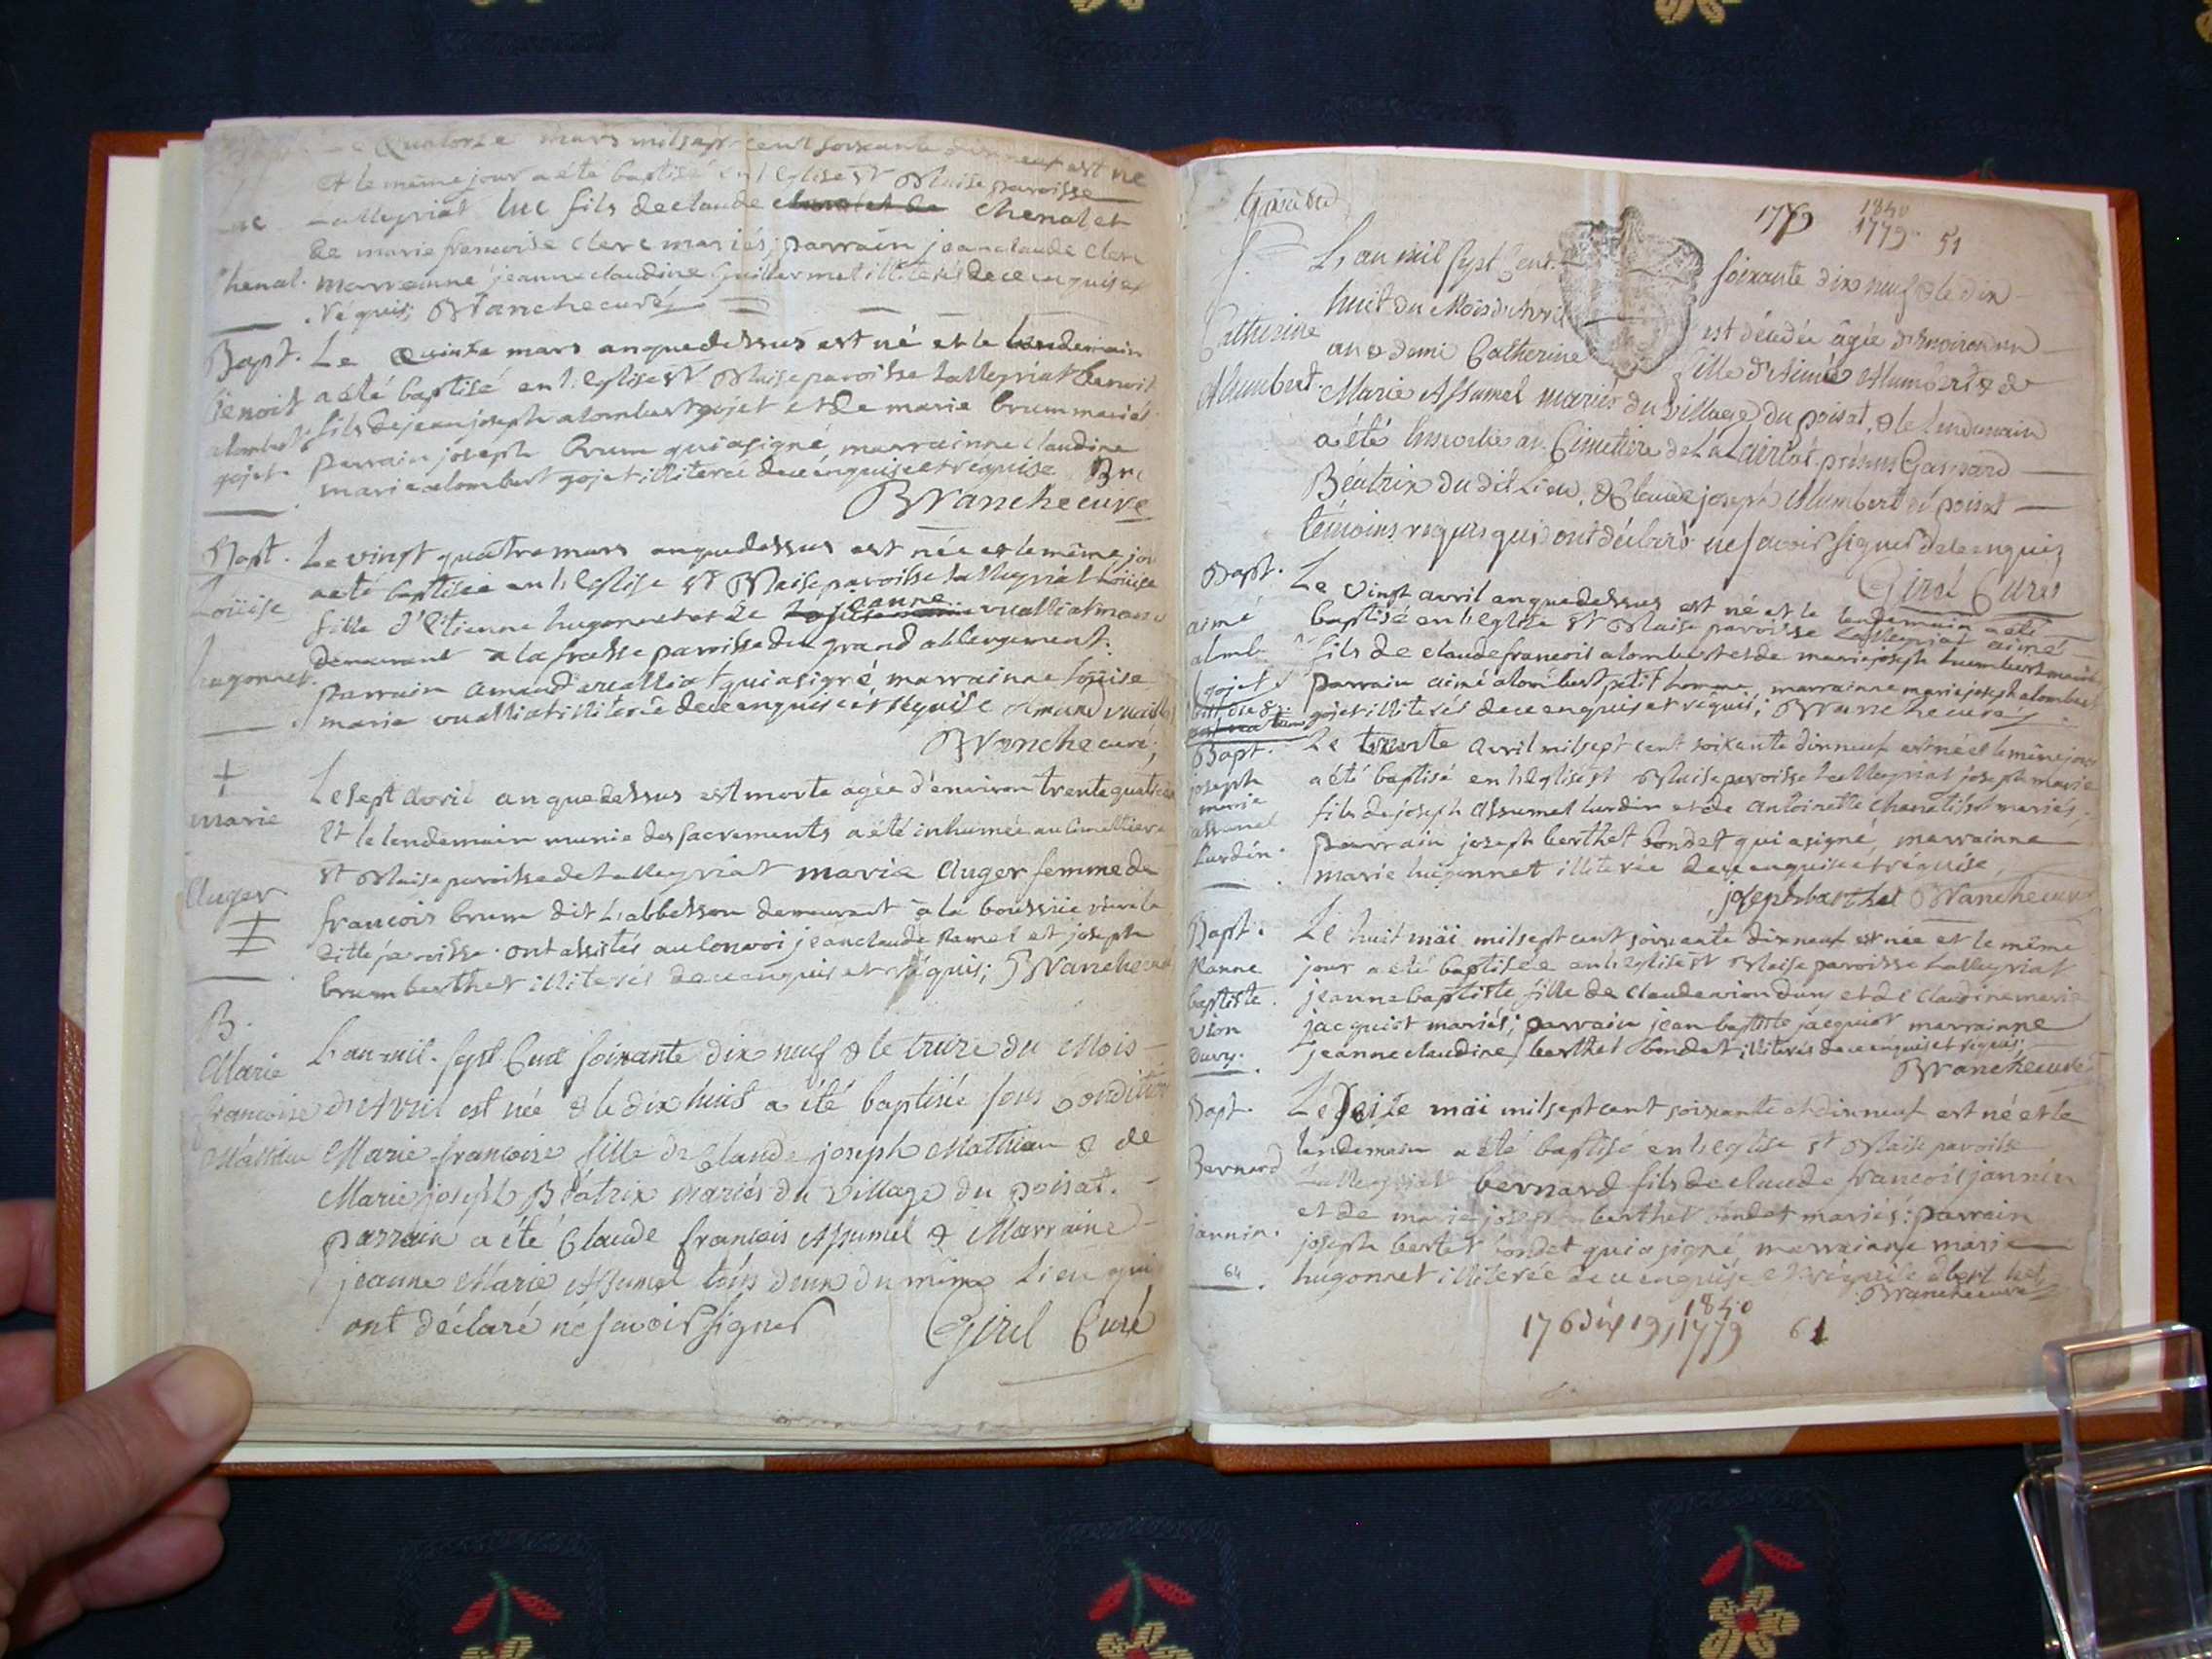 Quatorze mars mil sept cent soixante dix neuf est né
et le même jour a été baptisé en l'Eglise st Blaise paroisse
lalleyriat luc fils de claude chenal et
de marie francoise clerc mariés; parrain jean claude clerc
henal. marrainne jeanne claudine Guillermet illiterés de ce enquis et
réquis; BVanchecuré
Bapt. Le Quinze mars an que dessus est né et le lendemain
benoit a été baptisé en l'Eglise st Blaise paroisse Lalleyriat benoit
fils de jean joseph alombert gojet et de marie brun mariés
gojet parrain joseph Brun qui a signé marrainne claudine
marie alombert gojet illiterée de ce enquise et réquise
BVanchecuré
Bapt. Le vingt quatre mars an que dessus est née et le même jou
Loüise a eté baptisée en l'Eglise st Blaise paroisse Lalleyriat Loüise
fille d'Etienne hugonnet et de jeanne vualliat
hugonnet. demeurant a la fraisse paroisse du grand abbergement.
parrain amand vualliat qui a signé marrainne Loüise
marie vualliat illiterée de ce enquise et réquise amand
BVanchecuré;
+
marie
Le sept avril an que dessus est morte agée d'environ trente quatre
et le lendemain munie des sacrements a été inhumée au
st Blaise paroisse de Lalleyriat marie auger femme de
auger francois brun dit Labbesson demeurant a la
ditte paroisse. ont assistés au convoi jean claude et joseph
brun berthet illiterés de ce enquis et réquis; BVanchecuré
B.
Marie L'an mil. sept Cent soixante dix neuf & le treize du Mois
francoise d'Avril est née & le dix huit a été baptisée sous Condition
Mathieu Marie francoise fille de Claude joseph Mathieu & de
Marie joseph Béatrix mariés du village du poisat.
parrain a été Claude francois Assumel & Marraine
jeanne Marie Assumel tous deux du même Lieu qui
ont déclaré ne savoir signer Girel Curé
1779 1840
1779 51
L'an mil sept Cent soixante dix neuf & le dix
huit du Mois d'Avril est décédée âgée d'Environ un
Catherine an & demi Catherine fille d'Aimé Alumbert & de
Alumbert. Marie Assumel mariés du village du poisat, & le lendemain
a été au Cimetière de Lalairiat présens Gaspard
Béatrix du dit Lieu, & Claude joseph Alumbert du poisat
témoins requis qui ont déclaré ne savoir signer de ce enquis
Girel Curé
Bapt. Le vingt avril an que dessus est né et le lendemain a été
aimé baptisé en l'Eglise st Blaise paroisse Lalleyriat aimé
fils de claude francois alombert et de marie joseph humbert mariés
gojet parrain aimé alombert petit homme, marrainne marie joseph alombert
gojet illiterés de ce enquis et réquis; BVanchecuré
Bapt. Le trente avril mil sept cent soixante dix neuf est né et le même jour
joseph a été baptisé en l'Eglise st Blaise paroisse Lalleyriat joseph marie
marie
assumel fils de joseph assumel lurdin et de antoinette mariés,
Lurdin. parrain joseph berthet bondet qui a signé, marrainne
marie hugonnet illiterée de ce enquise et réquise,
joseph berthet BVanchecuré
Bapt. Le huit mai mil sept cent soixante dix neuf est née et le même
jeanne jour a eté baptisée en l'Eglise st Blaise paroisse Lalleyriat
baptiste. jeanne baptiste fille de claude vion dury et de claudine marie
vion jacquiot mariés; parrain jean baptiste jacquiot marrainne
dury. jeanne claudine berthet bondet illiterés de ce enquis et réquis;
BVanchecuré
Bapt. Le Seize mai mil sept cent soixante et dix neuf est né et le
lendemain a eté baptisé en l'Eglise st Blaise paroisse
Bernard Lalleyriat bernard fils de claude francois jannin
et de marie joseph berthet bondet mariés: parrain
jannin. joseph bertet bondet qui a signé, marrainne marie
64 hugonnet illiterée de ce enquise et réquise
BVanchecuré
1840
1779 61